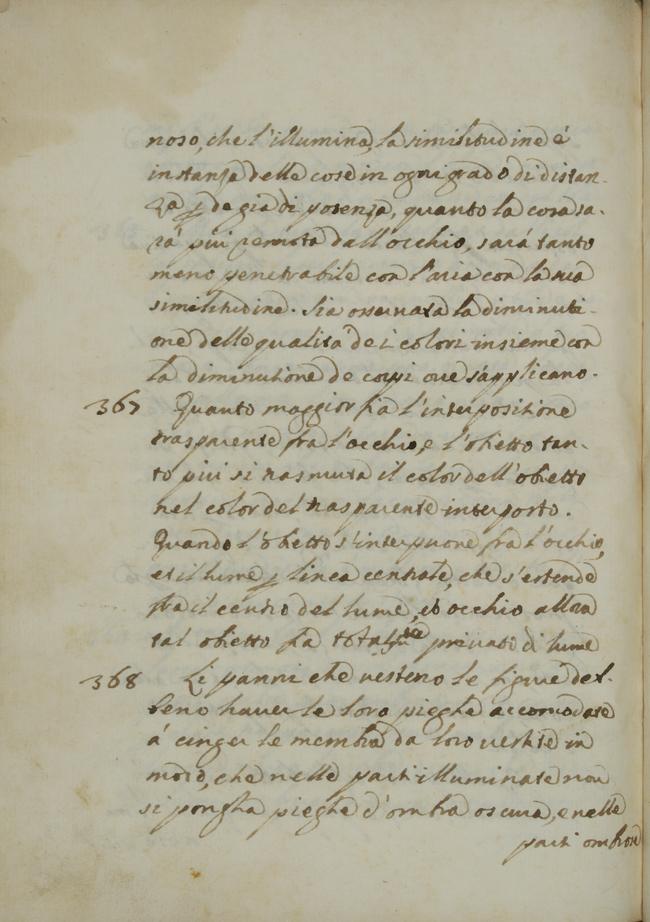 noso, che l'illumina, la similitudine é
in stanza delle cose in ogni grado di distan-
za, p de gia di potenza, quanto la cosa sa-
rá piú remota dall'occhio, sará tanto
meno penetrabile con l'aria con la sua
similitudine. Sia osservata la diminuti-
one delle qualitá de i colori insieme con
la diminutione de corpi ove s'applicano.
367 Quanto maggior fia l'interpositione
trasparente fra l'occhio, e l'obietto tan-
to piú si trasmuta il color dell'obietto
nel color del trasparente interposto.
Quando l'obietto s'interpone fra l'occhio,
et il lume p linea centrale, che s'estende
fra il centro del lume, et occhio allora
tal obietto fia totalmte privato di lume
368 Li panni che vesteno le figure deb-
beno haver le loro pieghe accomodate
á cinger le membra da loro vestite in
modo, che nelle parti illuminate non
si pongha pieghe d'ombra oscura, e nelle
parti ombrose